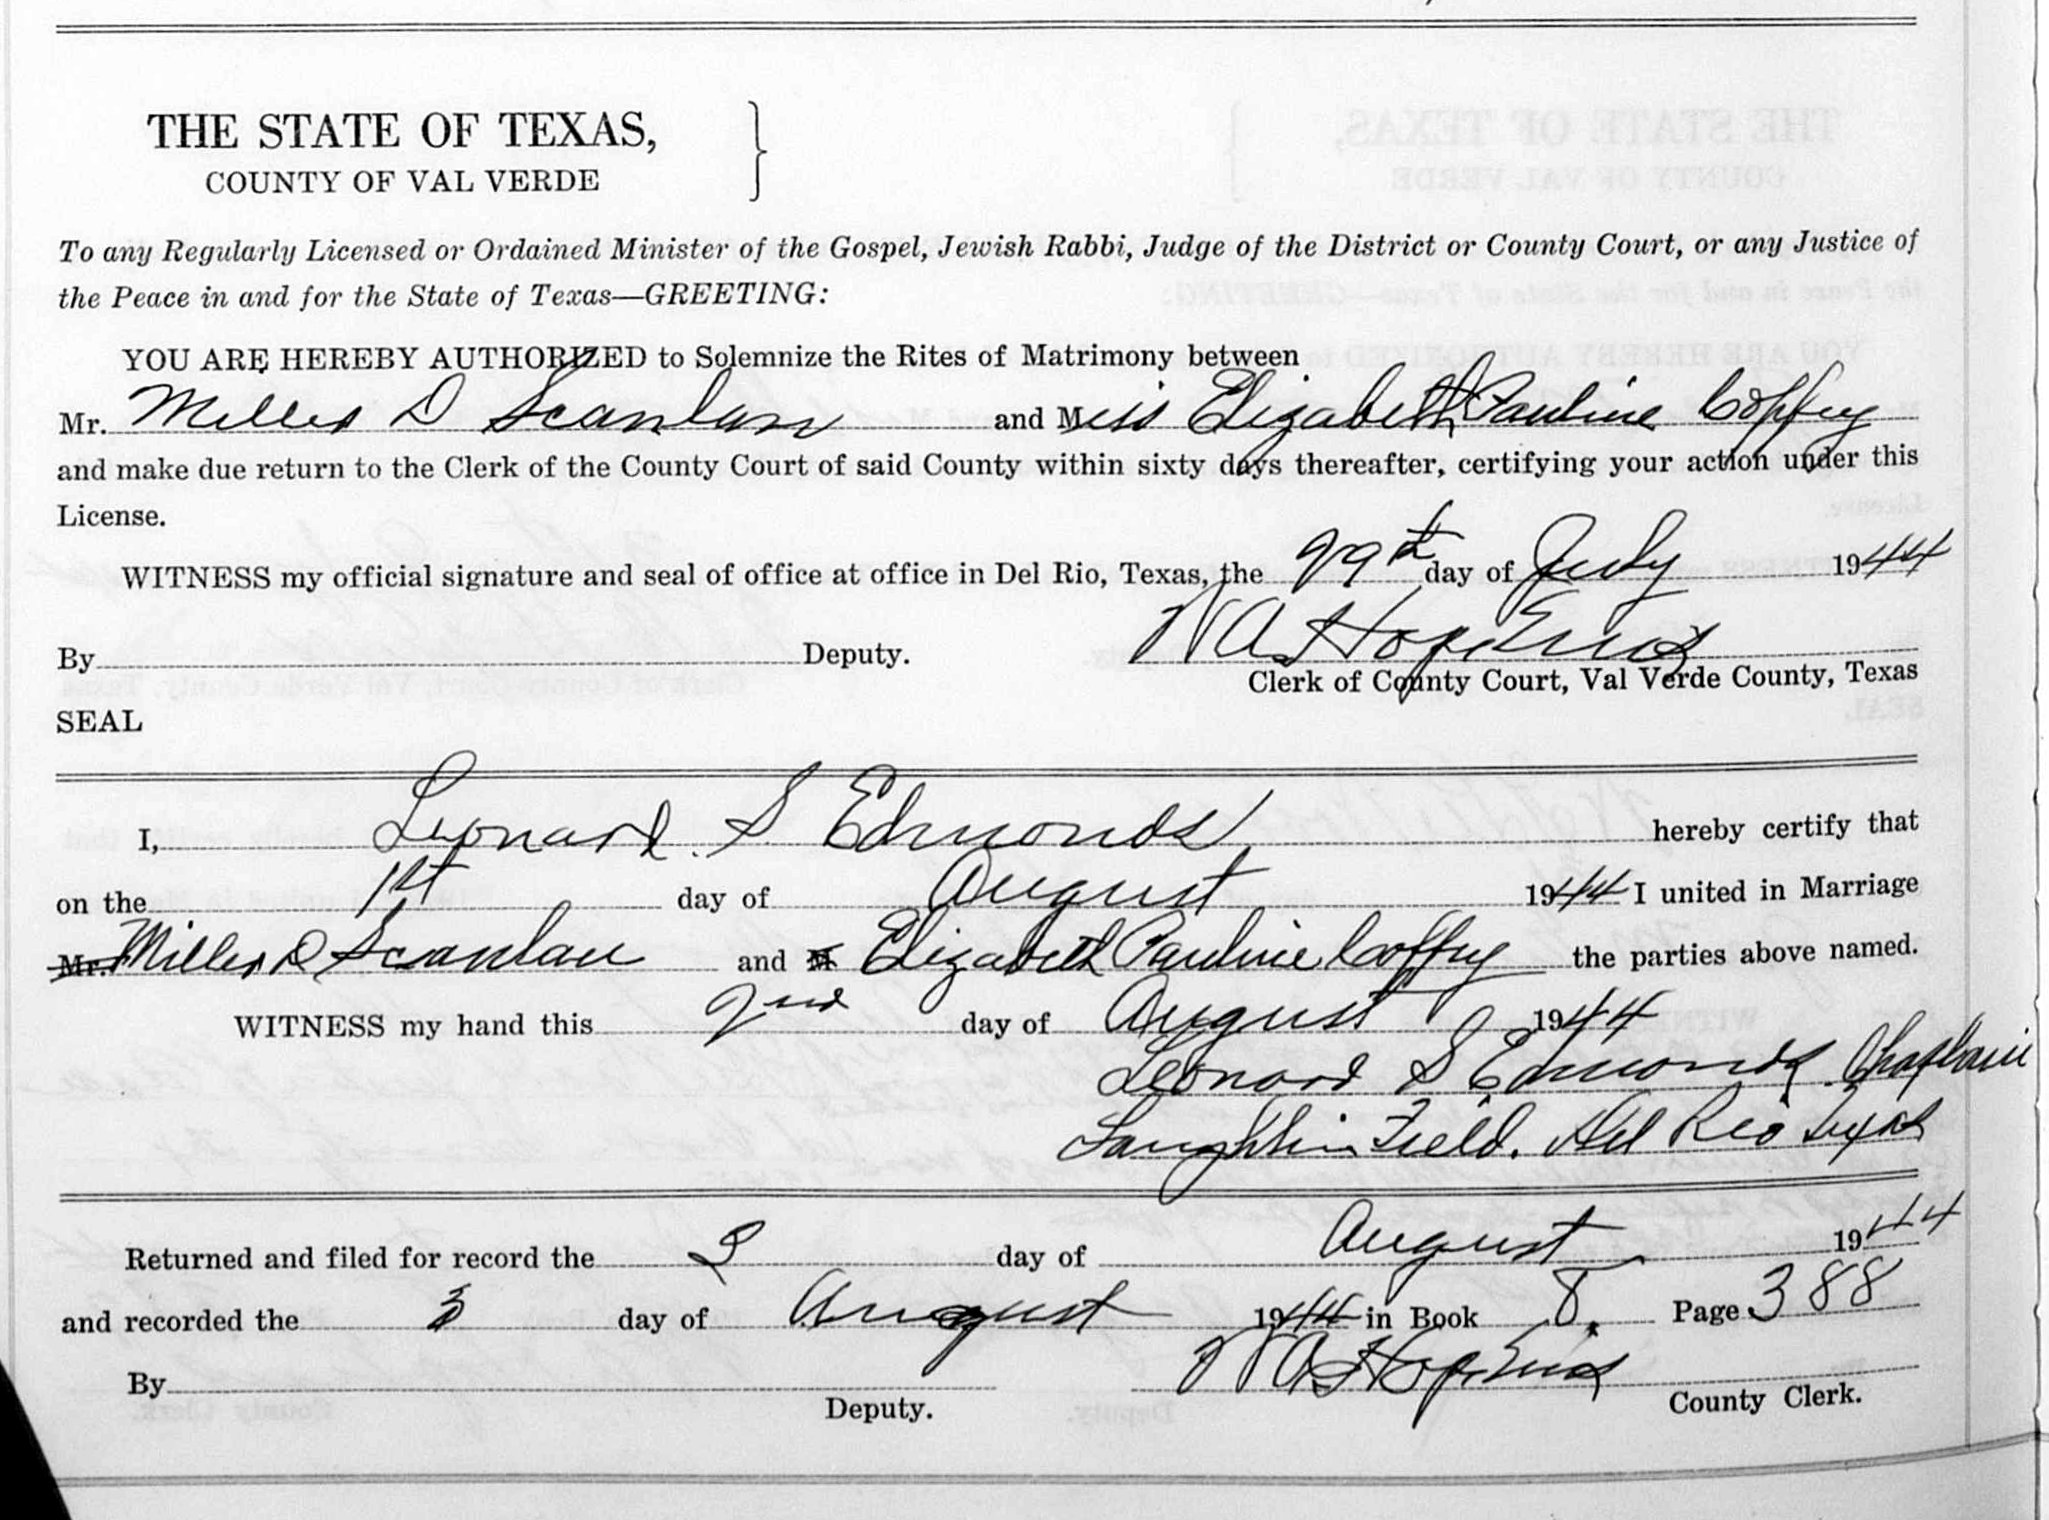 THE STATE OF TEXAS,
COUNTY OF VAL VERDE
To any Regularly Licensed or Ordained Minister of the Gospel, Jewish Rabbi, Judge of the District or County Court, or any Justice of
the Peace in and for the State of Texas—GREETING:
YOU ARE HEREBY AUTHORIZED to Solemnize the Rites of Matrimony between
Mr. Miller D Scanlan and Miss Elizabeth Pauline Coffey
and make due return to the Clerk of the County Court of said County within sixty days thereafter, certifying your action under this
License.
WITNESS my official signature and seal of office at office in Del Rio, Texas, the 29th day of July 1944
W A Hopkins
By Deputy.
Clerk of County Court, Val Verde County, Texas
SEAL
I, Leonard S Edmonds hereby certify that
on the 1st day of August 1944 I united in Marriage
Mr. Miller D Scanlan and M Elizabeth Pauline Coffey the parties above named.
WITNESS my hand this 2nd day of August 1944
Leonard S Edmonds. Chaplain
Laughlin Field. Del Rio Texas
Returned and filed for record the 2 day of August 1944
and recorded the 3 day of August 1944 in Book 8. Page 388
By W A Hopkins
Deputy. County Clerk.